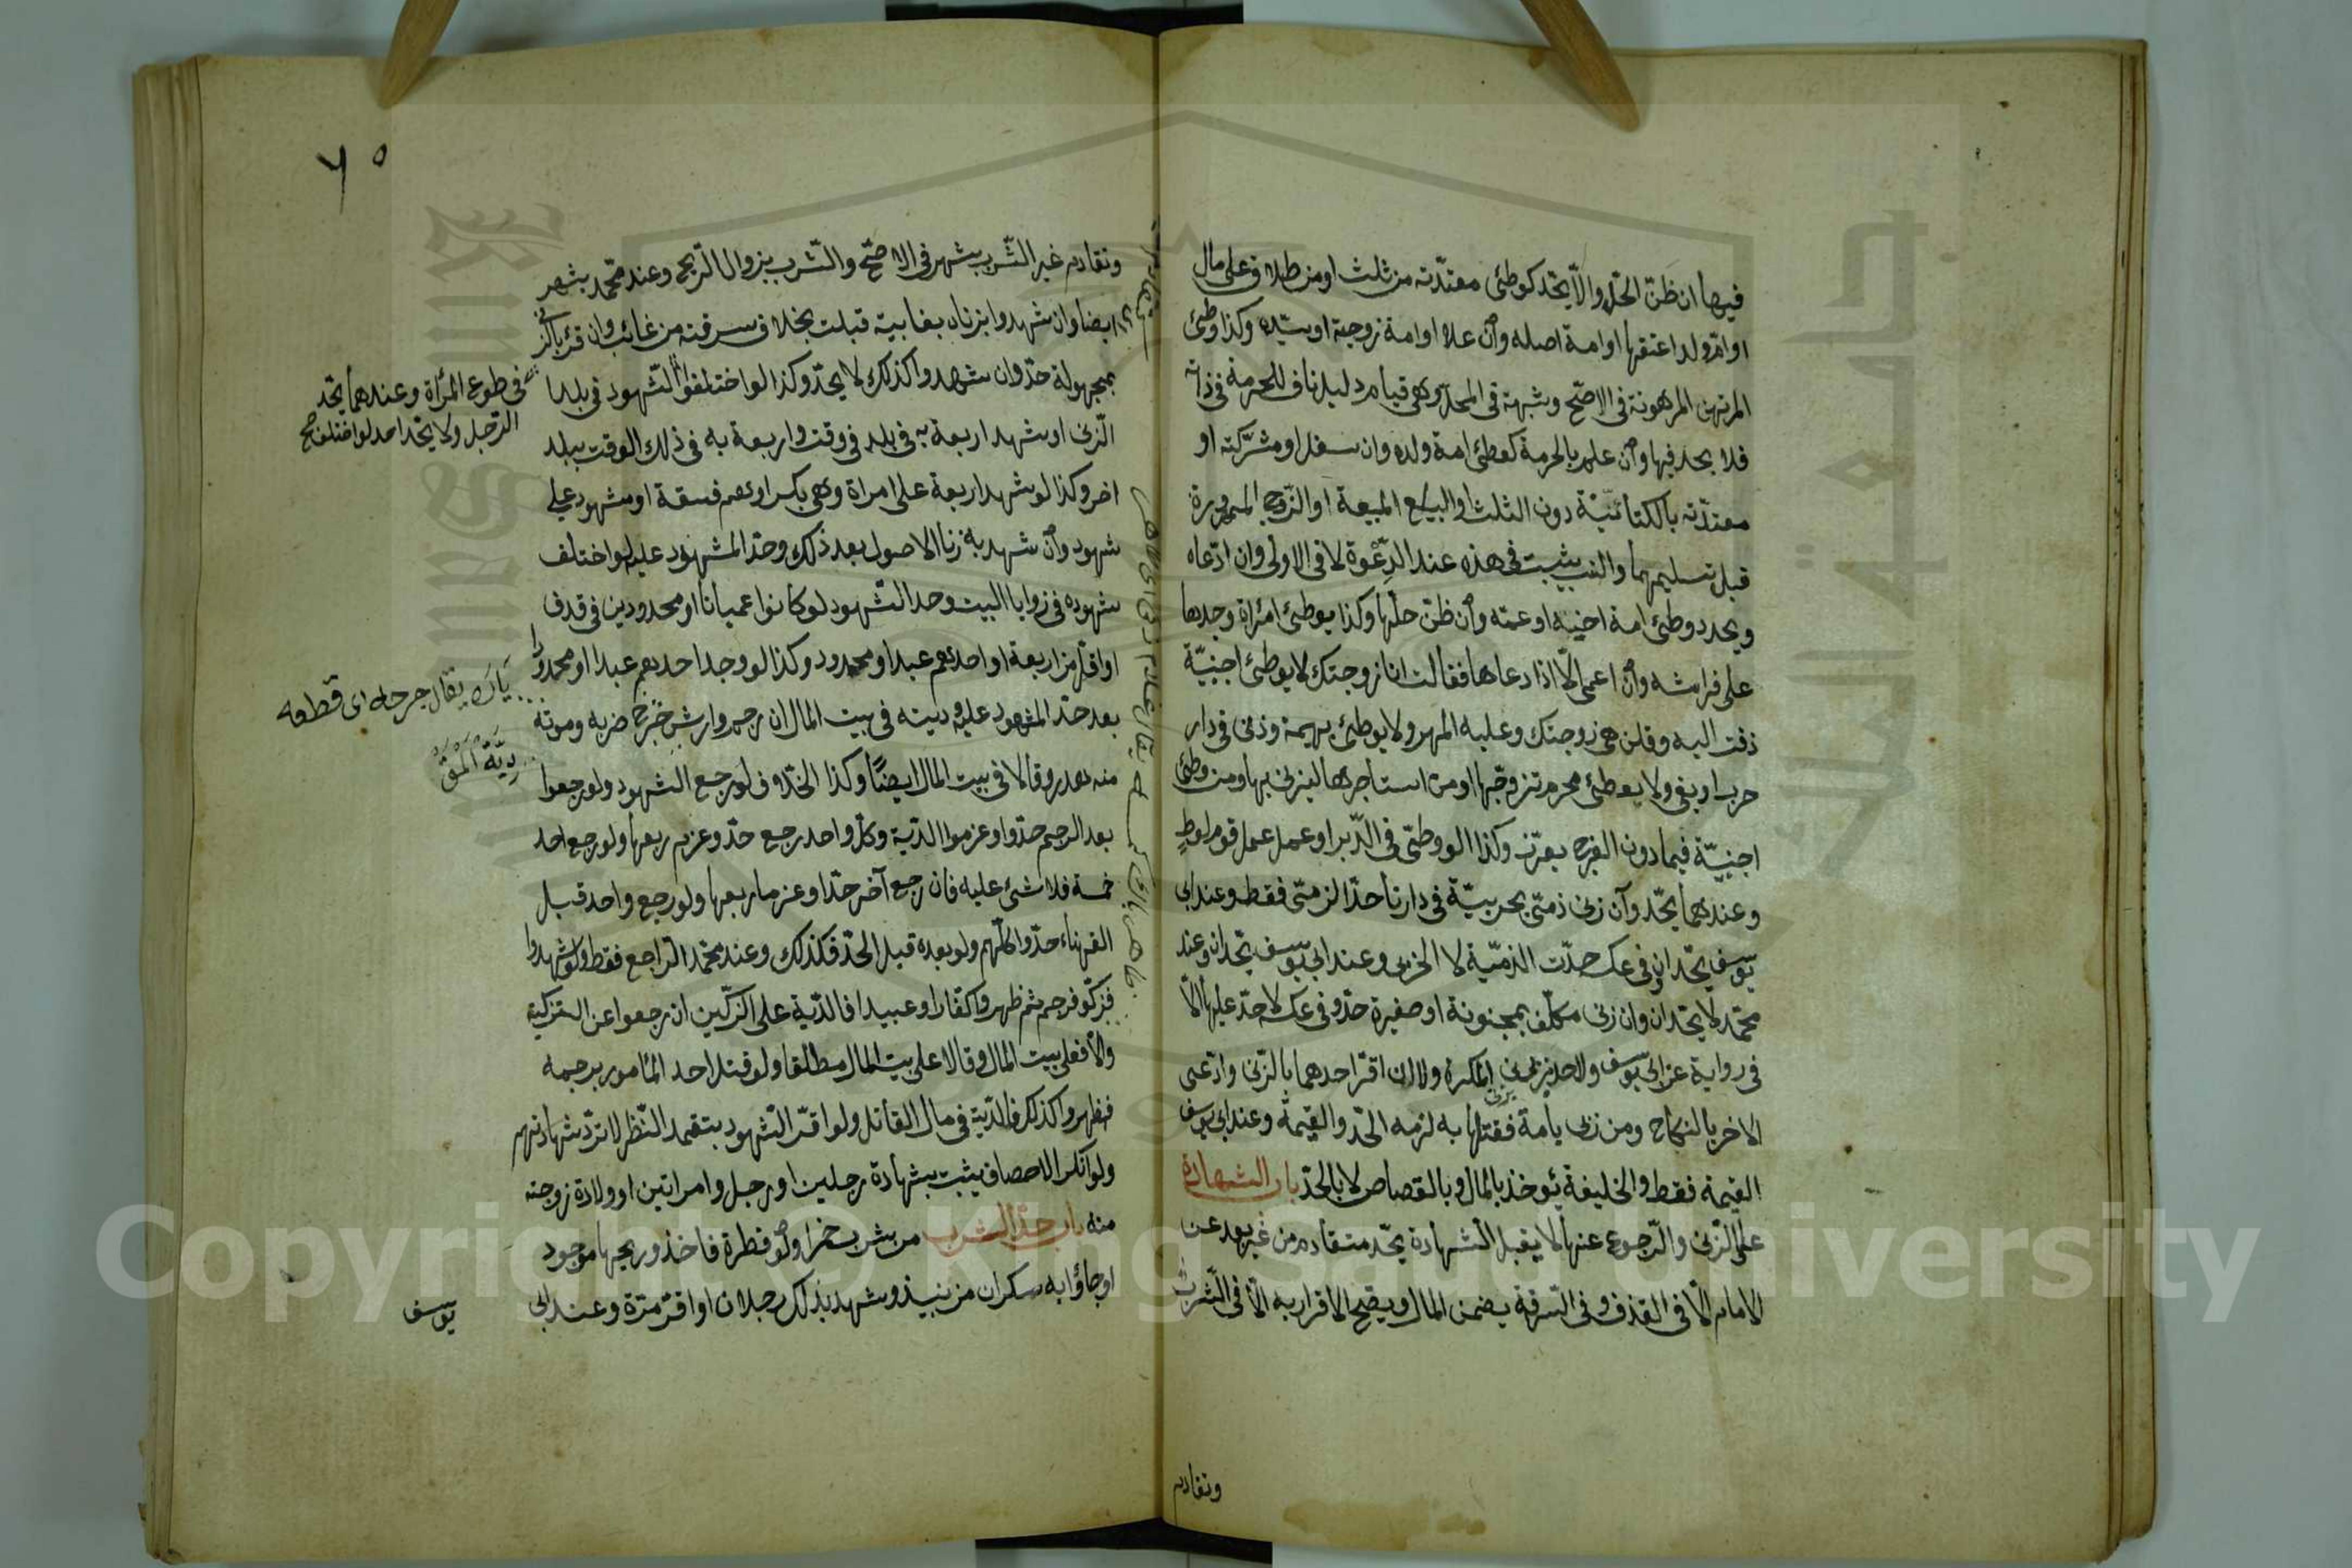 فيها ان ظن الحل والا يحد كوطئ معتدته من ثلث او من طلاق على مال
او ام ولد اعتقها او امة اصله وان علا او امة زوجته او سيده وكذا وطئ
المرتهن المرهونة فى الاصح وشبهة فى المحل وهى قيام دليل ناف للحرمة فى ذاته
فلا يحد فيها وان علم بالحرمة كوطئ امة ولده وان سفل او مشتركته او
معتدته بالكنائية دون الثلث او البايع المبيعة او الزوج الممهورة
قبل تسليمهما والنسب يثبت فى هذه عند الدعوة لا فى الاولى وان ادعاه
ويحد بوطئ امة اخيه او عمه وان ظن حلها وكذا بوطئ امرأة وجدها
على فراشه وان اعمى الا اذا دعاها فقالت انا زوجتك لا بوطئ اجنبية
زفت اليه وقلن هى زوجتك وعليه المهر ولا بوطئ بهيمة وزنى فى دار
حرب او بغى ولا بوطئ محرم تزوجها او من استأجرها ليزنى بها ومن وطئ
اجنبية فيما دون الفرج يعزر وكذا لو وطئ فى الدبر او عمل عمل قوم لوط
وعندهما يحد وان زنى ذمى بحربية فى دارنا حد الذمى فقط وعند ابى
يوسف يحدان وفى عكسه حدت الذمية لا الحربى وعند ابى يوسف يحدان وعند
محمد لا يحدان وان زنى مكلف بمجنونة او صغيرة حد وفى عكسه لا حد عليها الا
فى رواية عن ابى يوسف ولا حد بزنى المكره ولا ان اقر احدهما بالزنى وادعى
الاخر بالنكاح ومن زنى بأمة فقتلها به لزمه الحد والقيمة وعند ابى يوسف
القيمة فقط والخليفة يؤخذ بالمال وبالقصاص لا بالحد باب الشهادة
على الزنى والرجوع عنها لا يقبل الشهادة بحد متقادم من غير بعد عن
الامام الا فى القذف وفى السرقة يضمن المال ويصح الاقرار به الا فى الشرب
وتقادم
٦٥
وتقادم غير الشرب بشهر فى الاصح والشرب بزوال الريح وعند محمد بشهر
ايضا وان شهدوا بزناه بغايبة قبلت بخلاف سرقته من غائب وان اقر بالزنى
بمجهولة حد وان شهدوا كذلك لا يحد وكذا لو اختلفوا الشهود فى بلد
الزنى او شهد اربعة به فى بلد فى وقت واربعة به فى ذلك الوقت ببلد
اخر وكذا لو شهد اربعة على امراة وهى بكر او هم فسقة او شهود على
شهود وان شهد به زنا الاصول بعد ذلك وحد المشهود عليه لو اختلف
شهوده فى زوايا البيت وحد الشهود لو كانوا عميانا او محدودين فى قذف
او اقل من اربعة او احدهم عبد او محدود وكذا لو وجد احدهم عبدا او محدودا
بعد حد المشهود عليه وديته فى بيت المال ان رجم وارش جرح ضربه وموته
منه هدر وقالا فى بيت المال ايضا وكذا الخلاف لو رجع الشهود ولو رجعوا
بعد الرجم حدوا وغرموا الدية وكل واحد رجع حد وغرم ربعها ولو رجع احد
خمسة فلا شئ عليه فان رجع آخر حدا وغرما ربعها ولو رجع واحد قبل
القضاء حدوا كلهم ولو بعده قبل الحد فكذلك وعند محمد الراجع فقط ولو شهدوا
فزكوا فرجم ثم ظهروا كفارا او عبيدا فالدية على المزكين ان رجعوا عن التزكية
والا فعلى بيت المال وقالا على بيت المال مطلقا ولو قتل احد المأمور برجمه
فظهروا كذلك فالدية فى مال القاتل ولو اقر الشهود بتعمد النظر لا ترد شهادتهم
ولو انكر الاحصان يثبت بشهادة رجلين او رجل وامراتين او ولادة زوجته
منه باب حد الشرب من شرب خمرا ولو قطرة فاخذ وريحها موجود
او جاؤا به سكران من نبيذ وشهد بذلك رجلان او اقر مرة وعند ابى
يوسف
فى طوع المرأة وعندهما يحد
الرجل ولا يحد احد لو اختلف
يقال جرحه اى قطعه